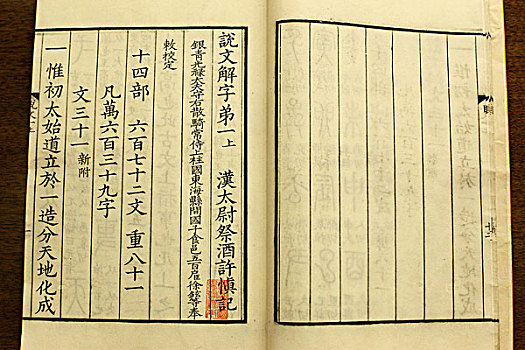 說文解字弟一上　漢太尉祭酒許愼記
銀青光祿大夫守右散騎常侍上柱國東海縣開國子食邑五百戶徐鉉等奉
敕校定
十四部　六百七十二文　重八十一
凡萬六百三十九字
文三十一新附
一惟初太始道立於一造分天地化成